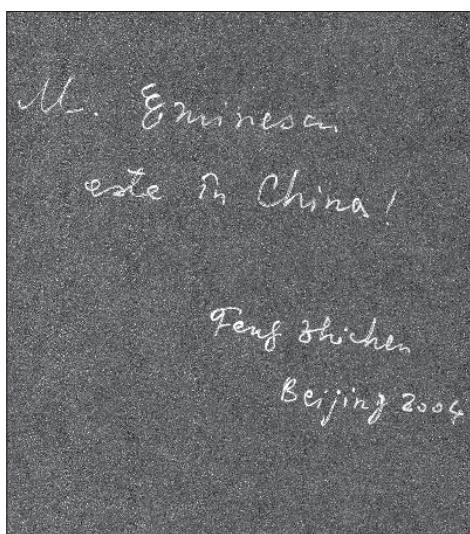 M. Eminescu
este în China!
Feng Zhichen
Beijing 2004